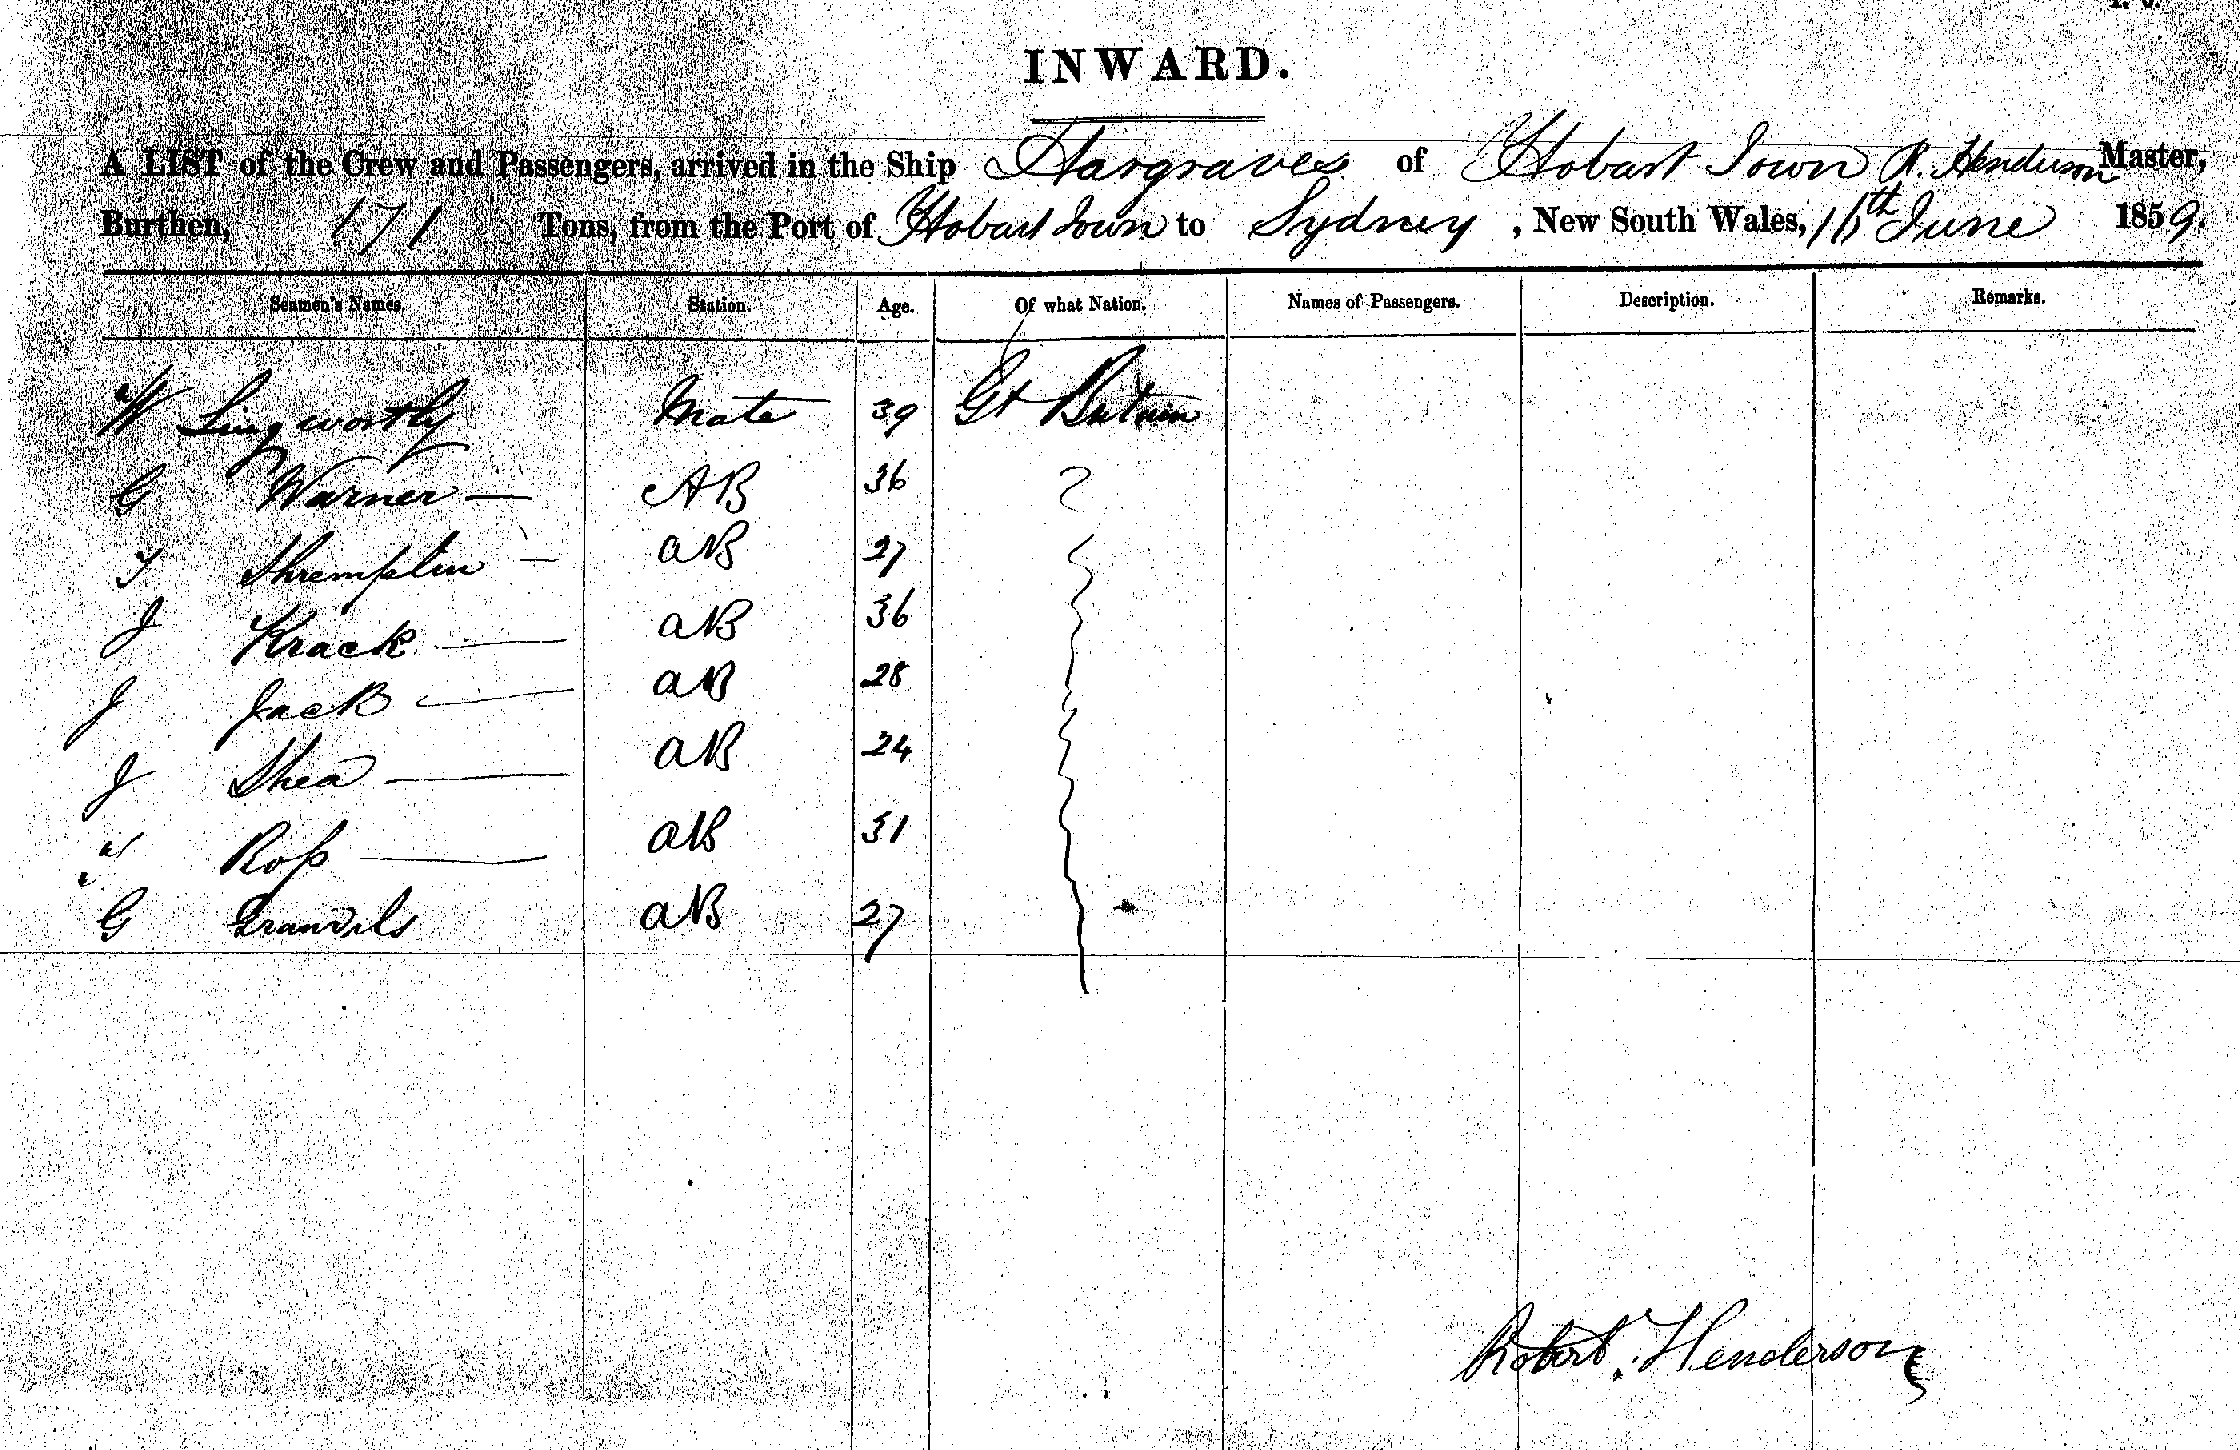 INWARD.
A LIST of the Crew and Passengers, arrived in the Ship Hargraves of Hobart Town R. Henderson Master,
Burthen, 171 Tons, from the Port of Hobart Town to Sydney, New South Wales, 16th June 1859.
Seamen's Names. Station. Age. Of what Nation. Names of Passengers. Description. Remarks.
W Lingworthy Mate 39 Gt Britain
G Warner — AB 36
T Shremptin — aB 27
J Krack — aB 36
J Jack — aB 28
J Shea — aB 24
" Ross — aB 31
G aB 27
Robert Henderson